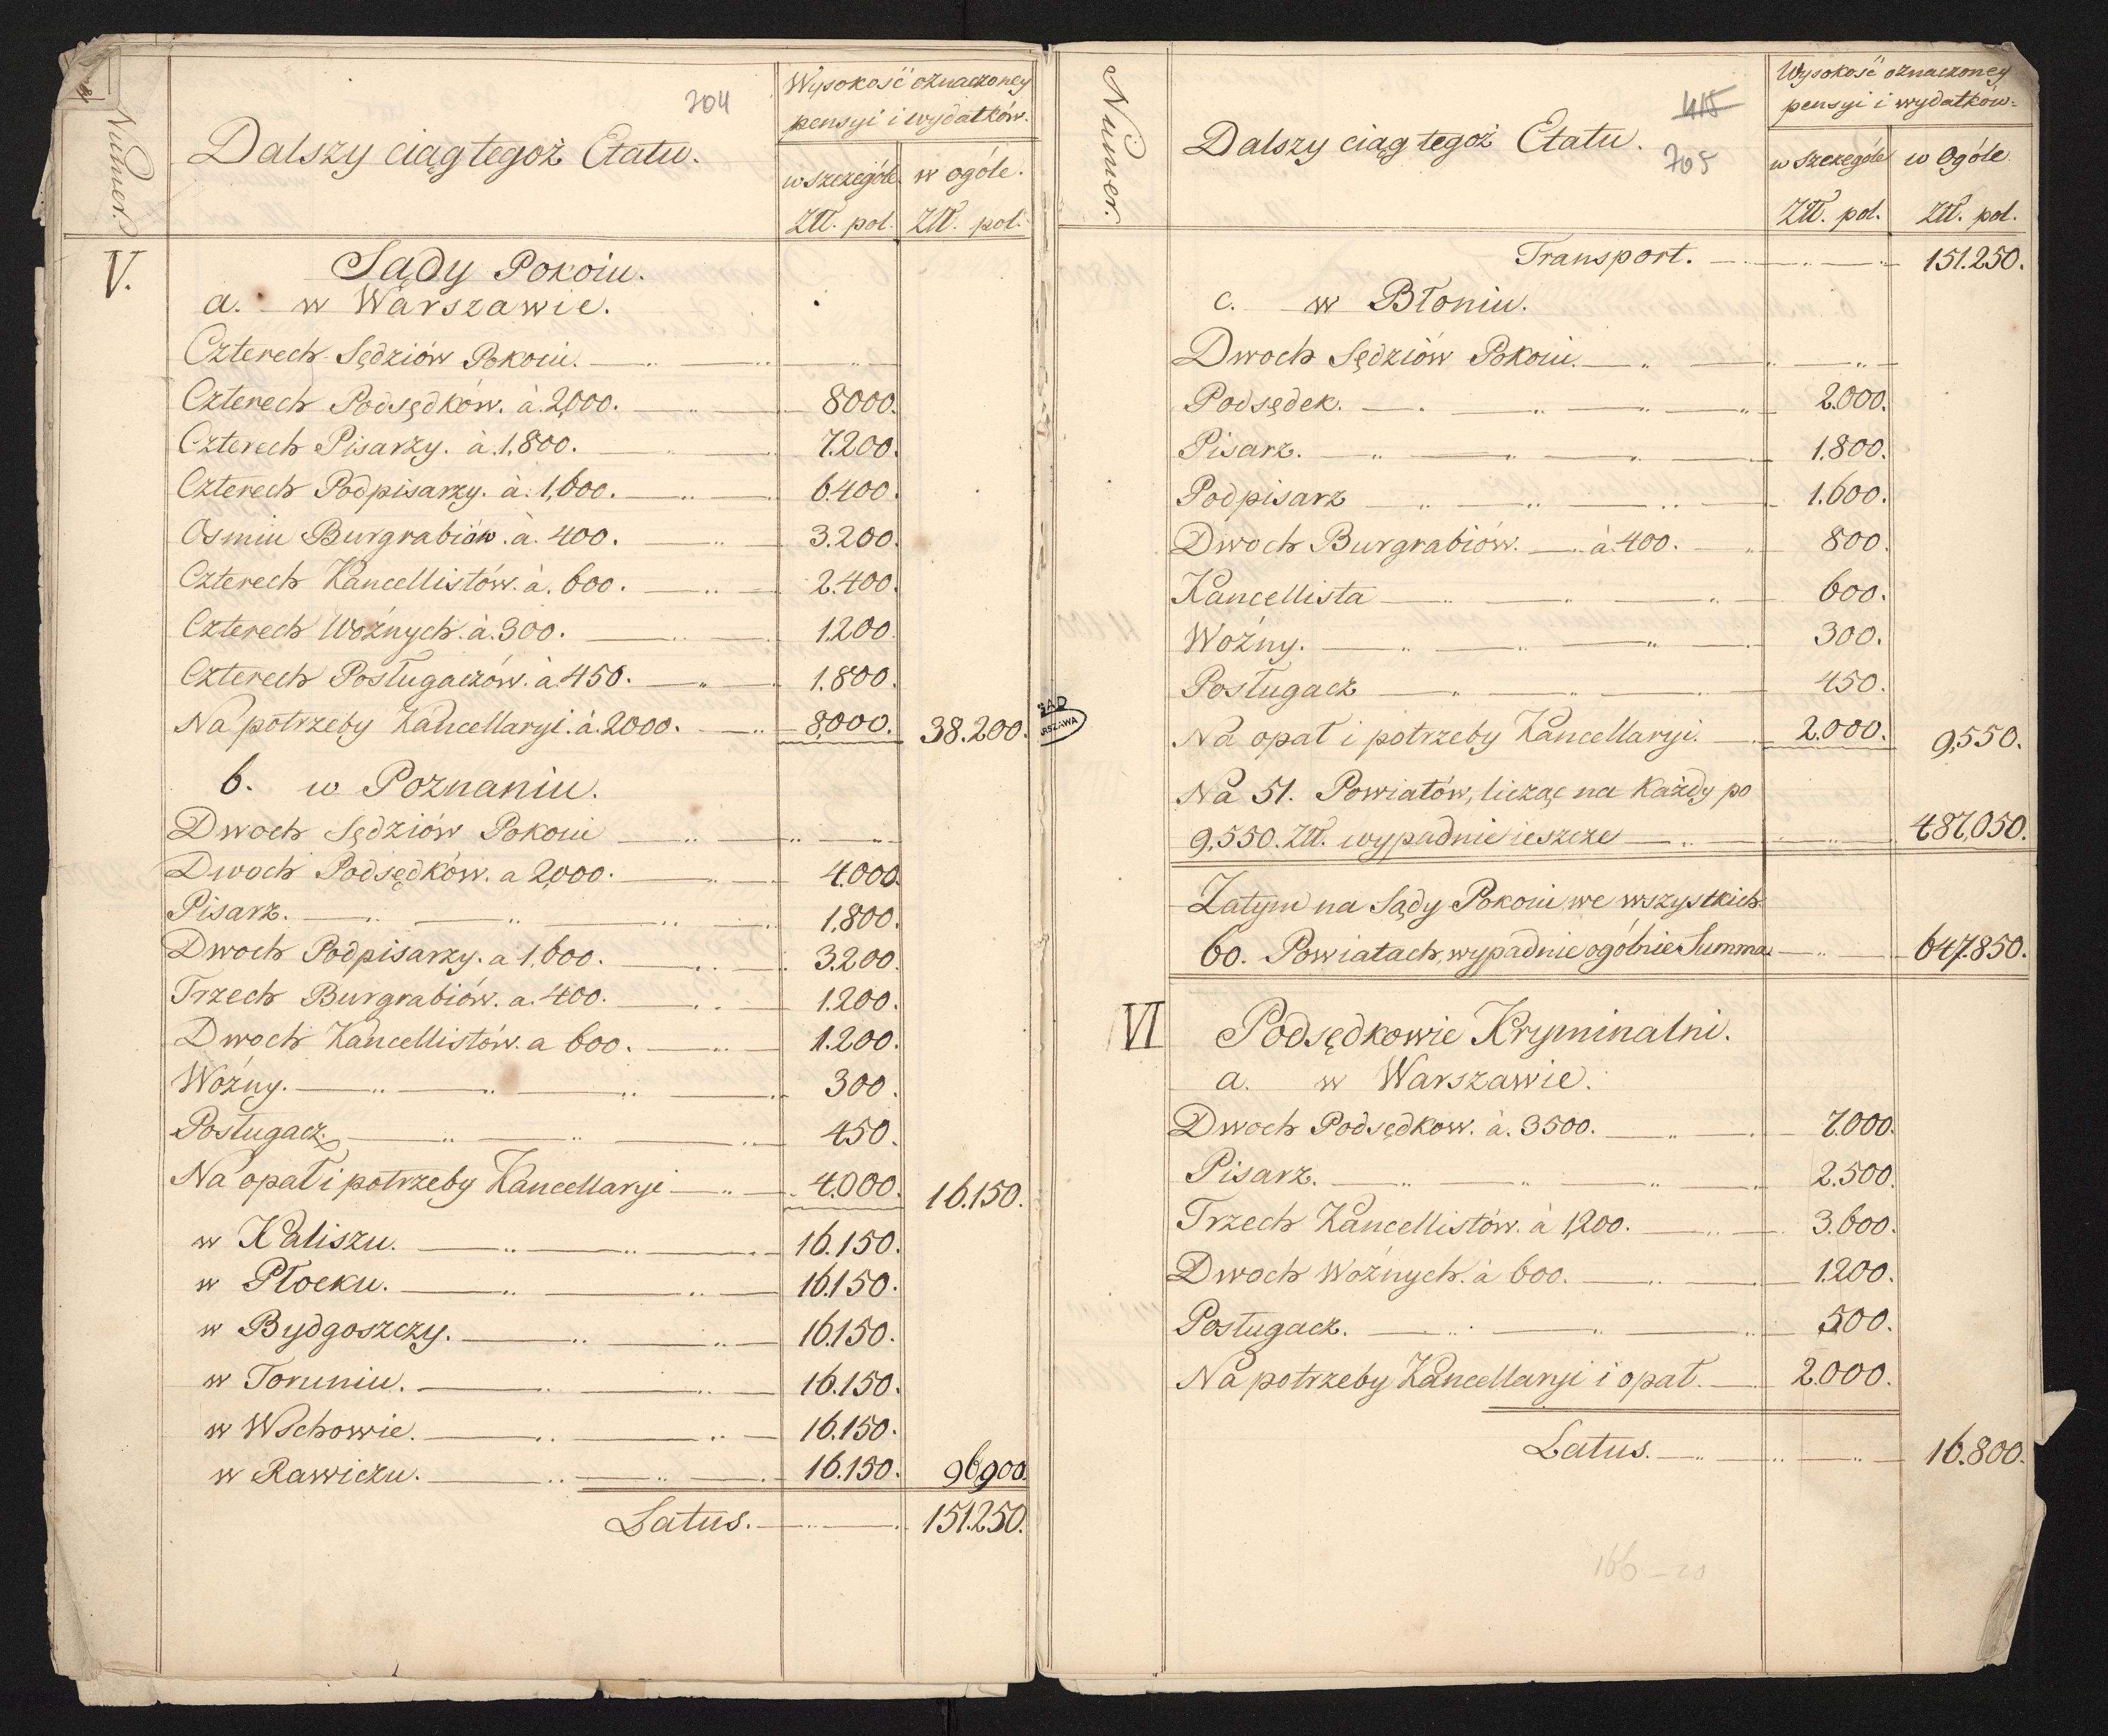 Numer.
Dalszy ciąg tegoż Etatu.
704
Wysokość oznaczoney
pensyi i wydatków.
w szczególe. w ogóle.
Złł. pol. Złł. pol.
V. Sądy Pokoiu.
a. w Warszawie.
Czterech Sędziów Pokoiu.
Czterech Podsędków. à. 2,000. 8000.
Czterech Pisarzy. à. 1,800. 7.200.
Czterech Podpisarzy. à. 1,600. 6.400.
Osmiu Burgrabiów. à. 400. 3.200.
Czterech Kancellistów. à. 600. 2.400.
Czterech Woźnych. à. 300. 1.200.
Czterech Posługaczów. à 450. 1.800.
Na potrzeby Kancellaryi. à. 2000. 8,000. 38.200.
b. w Poznaniu.
Dwoch Sędziów Pokoiu
Dwoch Podsędków. a 2,000. 4.000.
Pisarz. 1,800.
Dwoch Podpisarzy. a 1,600. 3.200.
Trzech Burgrabiów. a. 400. 1.200.
Dwoch Kancellistów. a 600. 1.200.
Woźny. 300.
Posługacz. 450.
Na opał i potrzeby Kancellaryi 4.000. 16.150.
w Kaliszu. 16.150.
w Płocku. 16.150.
w Bydgoszczy. 16.150.
w Toruniu. 16.150.
w Wschowie. 16.150.
w Rawiczu. 16.150. 96,900.
Latus. 151.250.
SAD
RSZAWA
Numer.
Dalszy ciąg tegoż Etatu.
415
705
Wysokość oznaczoney
pensyi i wydatków.
w szczególe w Ogóle.
Złł. pol. Złł. pol.
Transport. 151.250.
c. w Błoniu.
Dwoch Sędziów Pokoiu.
Podsędek. 2.000.
Pisarz. 1.800.
Podpisarz 1.600.
Dwoch Burgrabiów. à 400. 800.
Kancellista 600.
Woźny. 300.
Posługacz 450.
Na opał i potrzeby Kancellaryi. 2.000. 9,550.
Na 51. Powiatów, licząc na każdy po
9,550. Złł. wypadnie ieszcze 487,050.
Zatym na Sądy Pokoiu we wszystkich
60. Powiatach, wypadnie ogólnie Summa 647.850.
VI Podsędkowie Kryminalni.
a. w Warszawie.
Dwoch Podsędkow. à. 3500. 7.000.
Pisarz. 2.500.
Trzech Kancellistów. à 1,200. 3.600.
Dwoch Woźnych. à 600. 1.200.
Posługacz. 500.
Na potrzeby Kancellaryi i opał. 2.000.
Latus. 16.800.
166-20